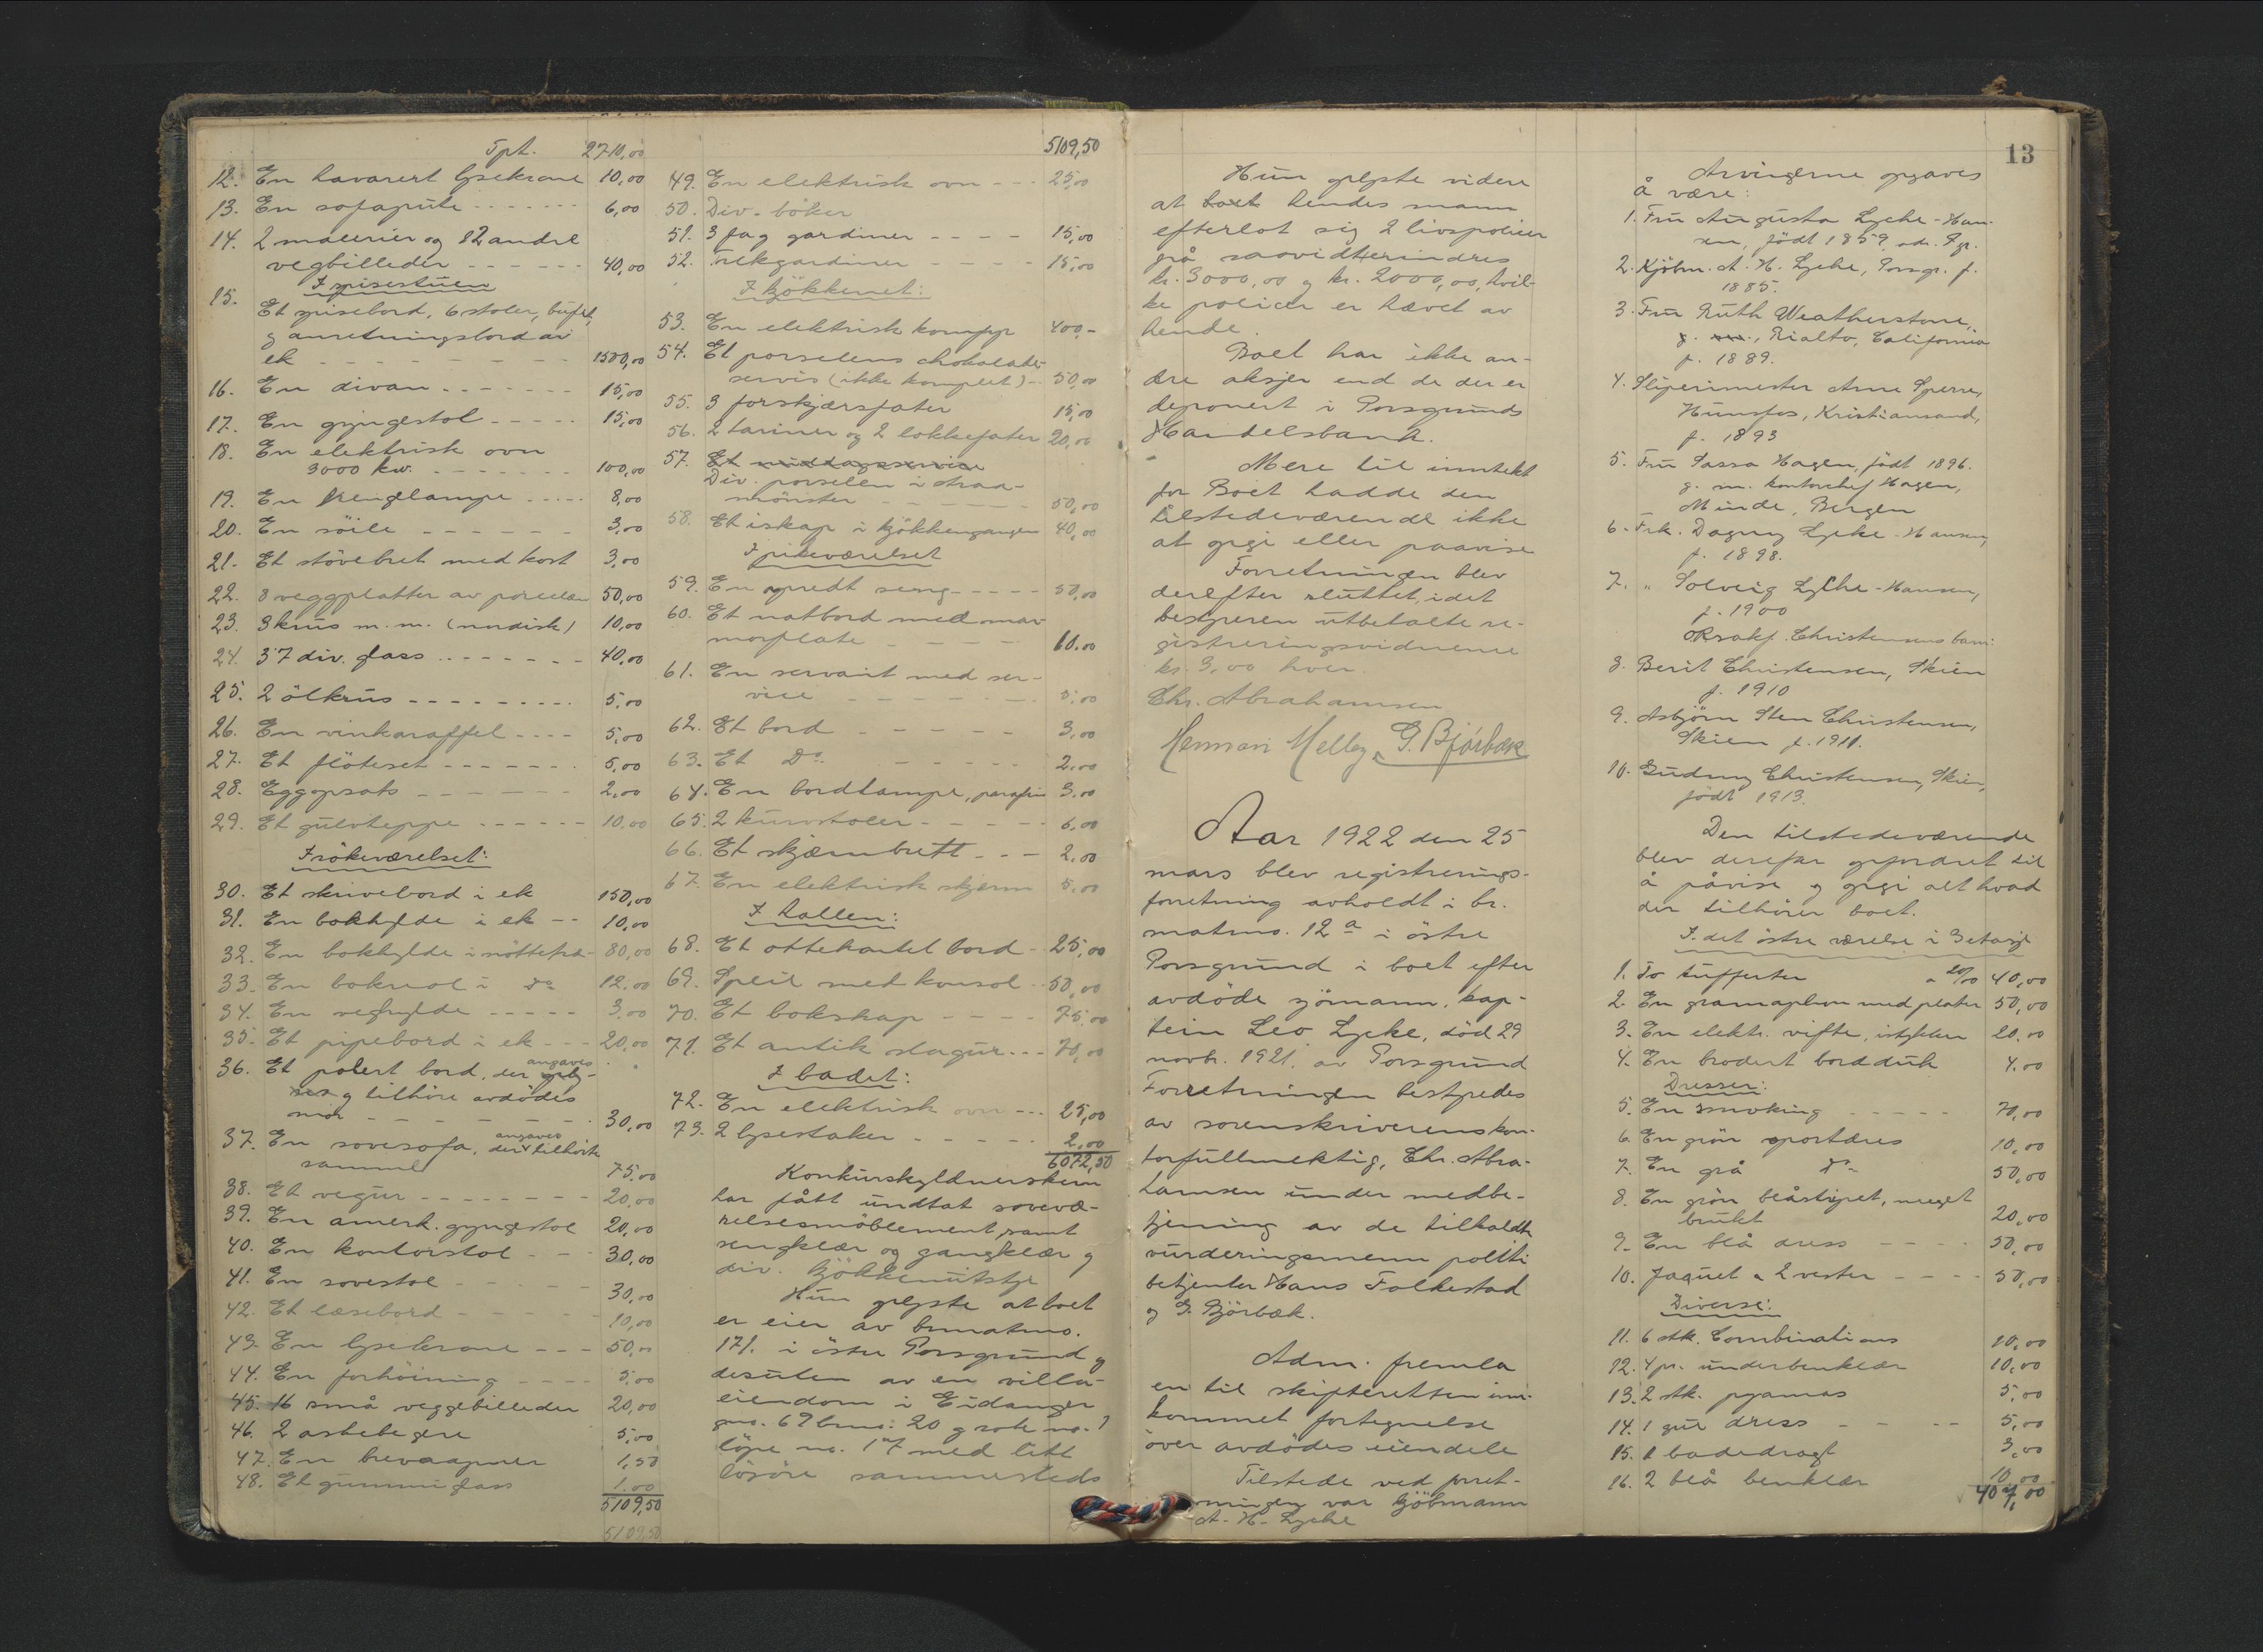 Tpt. 2710,00
12. En havarert lysekrone 10,00
13. En sofapute 6,00
14. 2 malerier og 12 andre
vegbilleder 40,00
I spisestuen
15. Et spisebord, 6 stoler, buffet,
og anretningsbord av
ek 1500,00
16. En divan 15,00
17. En gyngestol 15,00
18. En elektrisk ovn
3000 kw. 100,00
19. En hengelampe 8,00
20. En söile 3,00
21. Et stövebret med kost 3,00
22. 8 veggplatter av porselen 50,00
23. 3 krus m. m. (nordisk) 10,00
24. 37 div. glass 40,00
25. 2 ölkrus 5,00
26. En vinkaraffel 5,00
27. Et flöteset 5,00
28. Eggopsats 2,00
29. Et gulvteppe 10,00
I rökeværelset:
30. Et skrivebord i ek 150,00
31. En bokhylde i ek 10,00
32. En bokhylde i nöttetræ 80,00
33. En bokreol i do 12,00
34. En veghylde 3,00
35. Et pipebord i ek 20,00
36. Et polert bord, der angaves
og tilhöre avdödes
mor 30,00
37. En sovesofa, der angaves tilhöre
samme 75,00
38. Et vegur 20,00
39. En amerk. gyngestol 20,00
40. En kontorstol 30,00
41. En sovestol 30,00
42. Et læsebord 10,00
43. En lysekrone 50,00
44. En forhöining 5,00
45. 16 små veggebilleder 20,00
46. 2 askebegre 5,00
47. En brevaapner 1,50
48. Et gummi glass 1,00
5109,50
5109,50
5109,50
49. En elektrisk ovn 25,00
50. Div. böker
51. 3 fag gardiner 15,00
52. Trekgardiner 15,00
I kjökkenet:
53. En elektrisk komfyr 400,-
54. Et porselens chokolade-
servis (ikke komplet) 50,00
55. 3 forskjærsfater 15,00
56. 2 tariner og 2 lokkefater 20,00
57. Et middagsservise
Div. porselen i straa-
mönster 50,00
58. Et iskap i kjökkengangen 40,00
I pikeværelset
59. En opredt seng 50,00
60. Et natbord med mar-
morplate 10.00
61. En servant med ser-
vice 5,00
62. Et bord 3,00
63. Et Do 2,00
64. En bordlampe, parafin 3,00
65. 2 kurvstoler 6,00
66. Et skjærmbrett 2,00
67. En elektrisk skjerm 5,00
I hallen:
68. Et ottekantet bord 25,00
69. Speil med konsol 50,00
70. Et bokskap 75,00
71. Et antik slagur 70,00
I badet:
72. En elektrisk ovn 25,00
73. 2 lysestaker 2,00
6072,50
Konkursskyldnerskenn
har fått undtat sovevæ-
relsesmöblement, samt
sengklær og gangklær og
div. kjökkenutstyr
Hun oplyste at boet
er eier av brmatrno.
171. i östre Porsgrund og
desuten av en villa-
eiendom i Eidanger
gno. 69 brno. 20 og
löpe no. med litt
lösöre sammesteds
Hun oplyste videre
at boet hendes mann
efterlot sig 2 livspolicer
på saavidt erindres
kr. 3000,00 og kr. 2000,00, hvil-
ke policer er hævet av
hende.
Boet har ikke an-
dre aksjer end de der er
deponert i Porsgrunds
Handelsbank.
Mere til inntekt
for Boet hadde den
tilstedeværende ikke
at opgi eller paavise
Forretningen blev
derefter sluttet, idet
bestyreren utbetalte re-
gistreringsvidnerne
kr. 3,00 hver.
Chr. Abrahamsen
Herman Melby G. Bjørbæk
Aar 1922 den 25
mars blev registrerings-
forretning avholdt i br.
matrno. 12a i östre
Porsgrund i boet efter
avdöde sjömann, kap-
tein Leo Lyche, död 29
novbr. 1921 av Porsgrund
Forretningen bestyredes
av sorenskriverens kon-
torfullmektig, Chr. Abra-
hamsen under medbe-
tjening av de tilkaldte
vurderingsmenn politi
betjenter Hans Folkestad
og G. Bjørbæk.
Adm. fremla
en til skifteretten inn-
kommet fortegnelse
over avdödes eiendele
Tilstede ved forret-
ningen var kjöbmann
A. H. Lyche
13
Arvingerne opgaves
å være:
1. Fru Augusta Lyche-Han-
sen, födt 1859, adr. Pgr.
2. Kjöbm. A. H. Lyche, Porsgr. f.
1885.
3. Fru Ruth Weatherstone,
g. , Rialto, California
f. 1889.
4. Sliperimester Arne Sperre,
Hunsfos, Kristiansand,
f. 1893
5. Fru Hagen, födt 1896.
g. m. kontorchef Hagen,
Minde, Bergen
6. Frk. Dagny Lyche-Hansen,
f. 1898.
7. " Solveig Lyche-Hansen,
f. 1900
ORsakf. Christensens barn:
8. Berit Christensen, Skien
f. 1910
9. Asbjörn Sten Christensen,
Skien f. 1911.
10. Gudny Christensen, Skien,
födt 1913.
Den tilstedeværende
blev derefter opfordret til
å påvise og opgi alt hvad
der tilhörer boet.
I det östre værelse i 3 etasje
1. To kufferter a 20/00 40,00
2. En gramaphon med plater 50,00
3. En elektr. vifte, istykker 20.00
4. En brodert bordduk 4.00
Dresser:
5. En smoking 70,00
6. En grön sportdres 10,00
7. En grå Do 50,00
8. En grön blåstripet, meget
brukt 20,00
9. En blå dress 50,00
10. Jaquet & 2 vester 50,00
Diverse:
11. 6 stk. Combinations 10,00
12. 4 pr. underbenklær 10,00
13. 2 stk. pyamas 5,00
14. 1 gul dress 5,00
15. 1 badedragt 3,00
16. 2 blå benklær 10,00
407,00